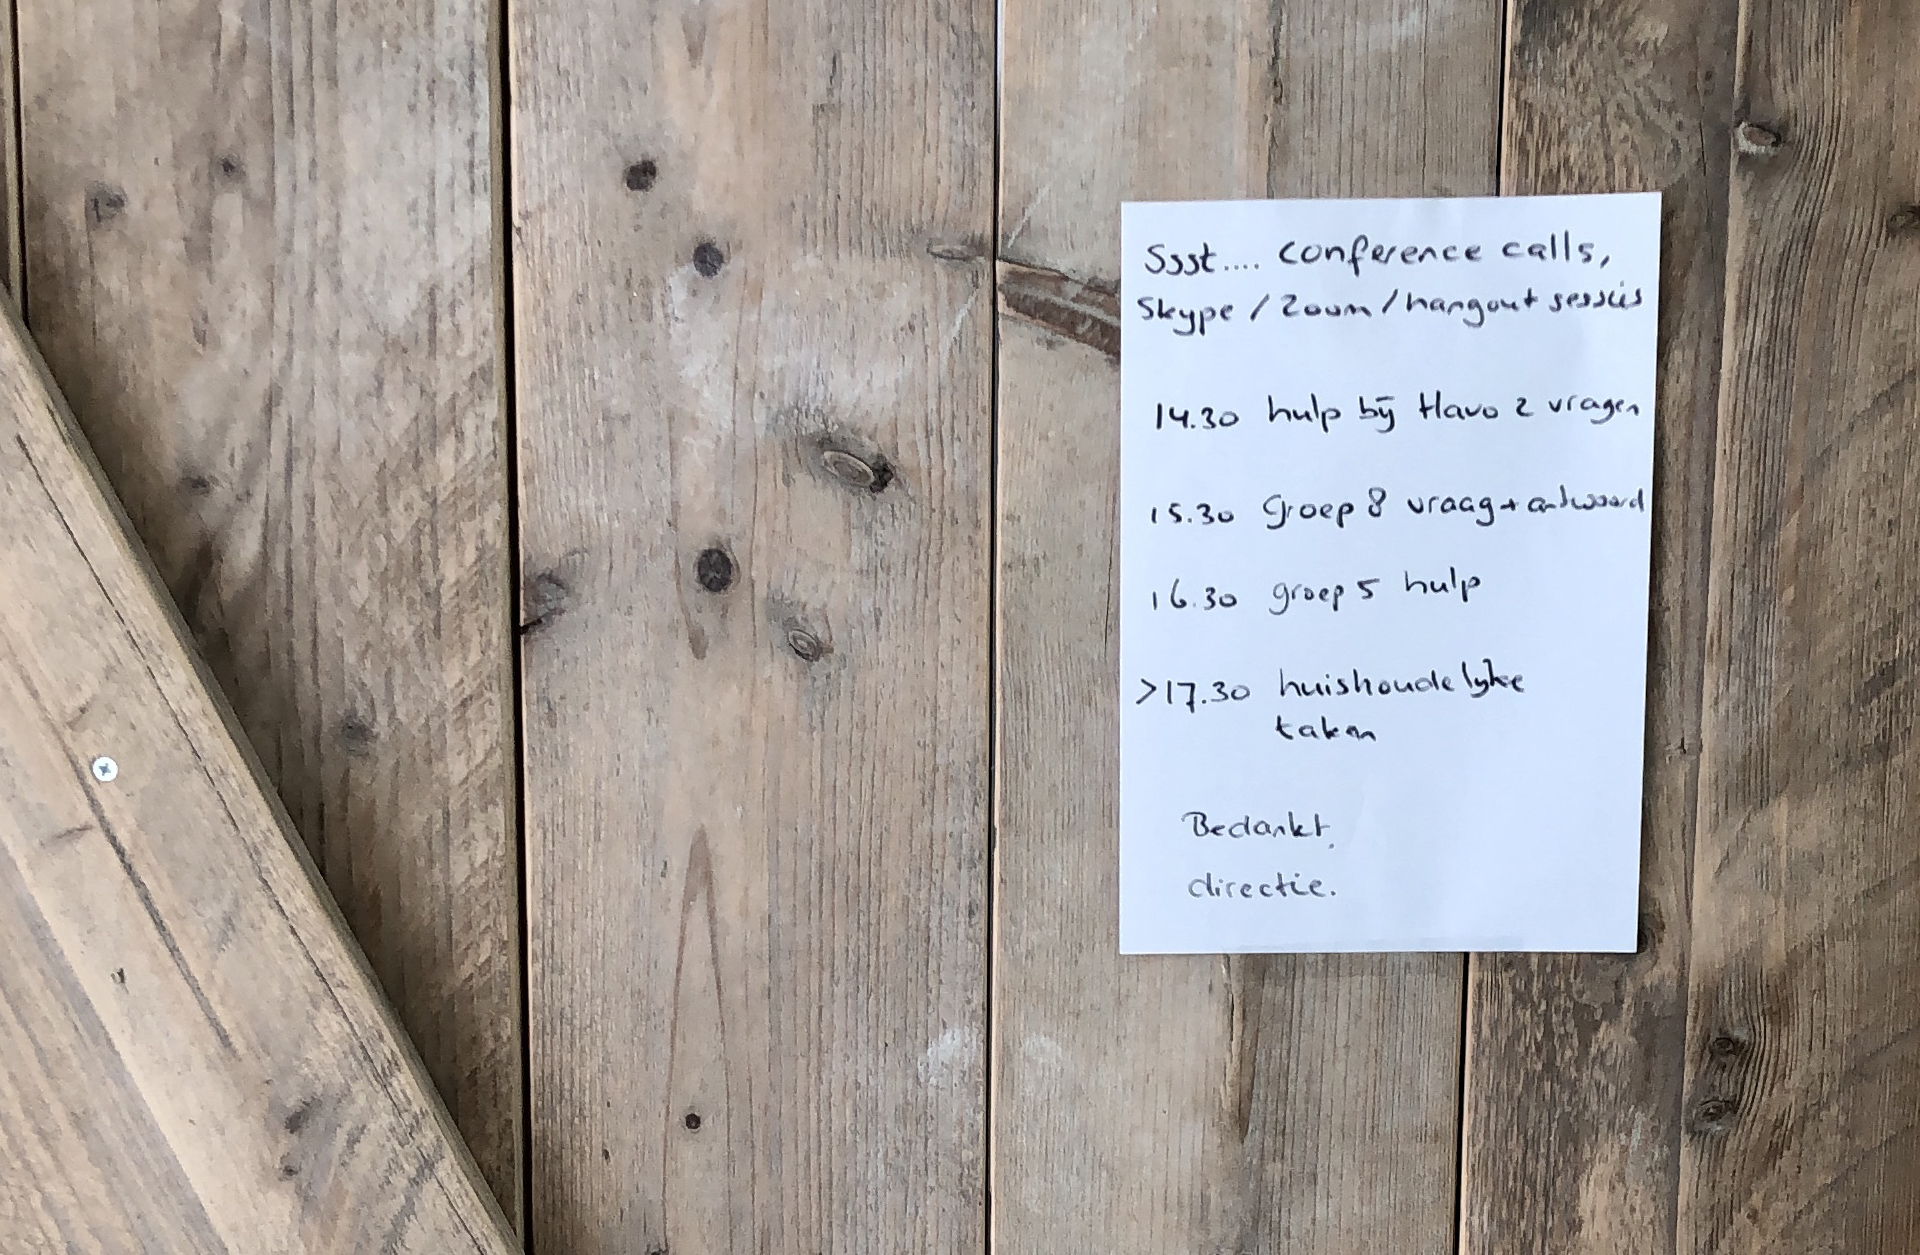 Ssst.... conference calls,
Skype / Zoom / hangout sessies
14.30 hulp bij Havo 2 vragen
15.30 Groep 8 vraag + antwoord
16.30 groep 5 hulp
>17.30 huishoudelijke
taken
Bedankt,
directie.